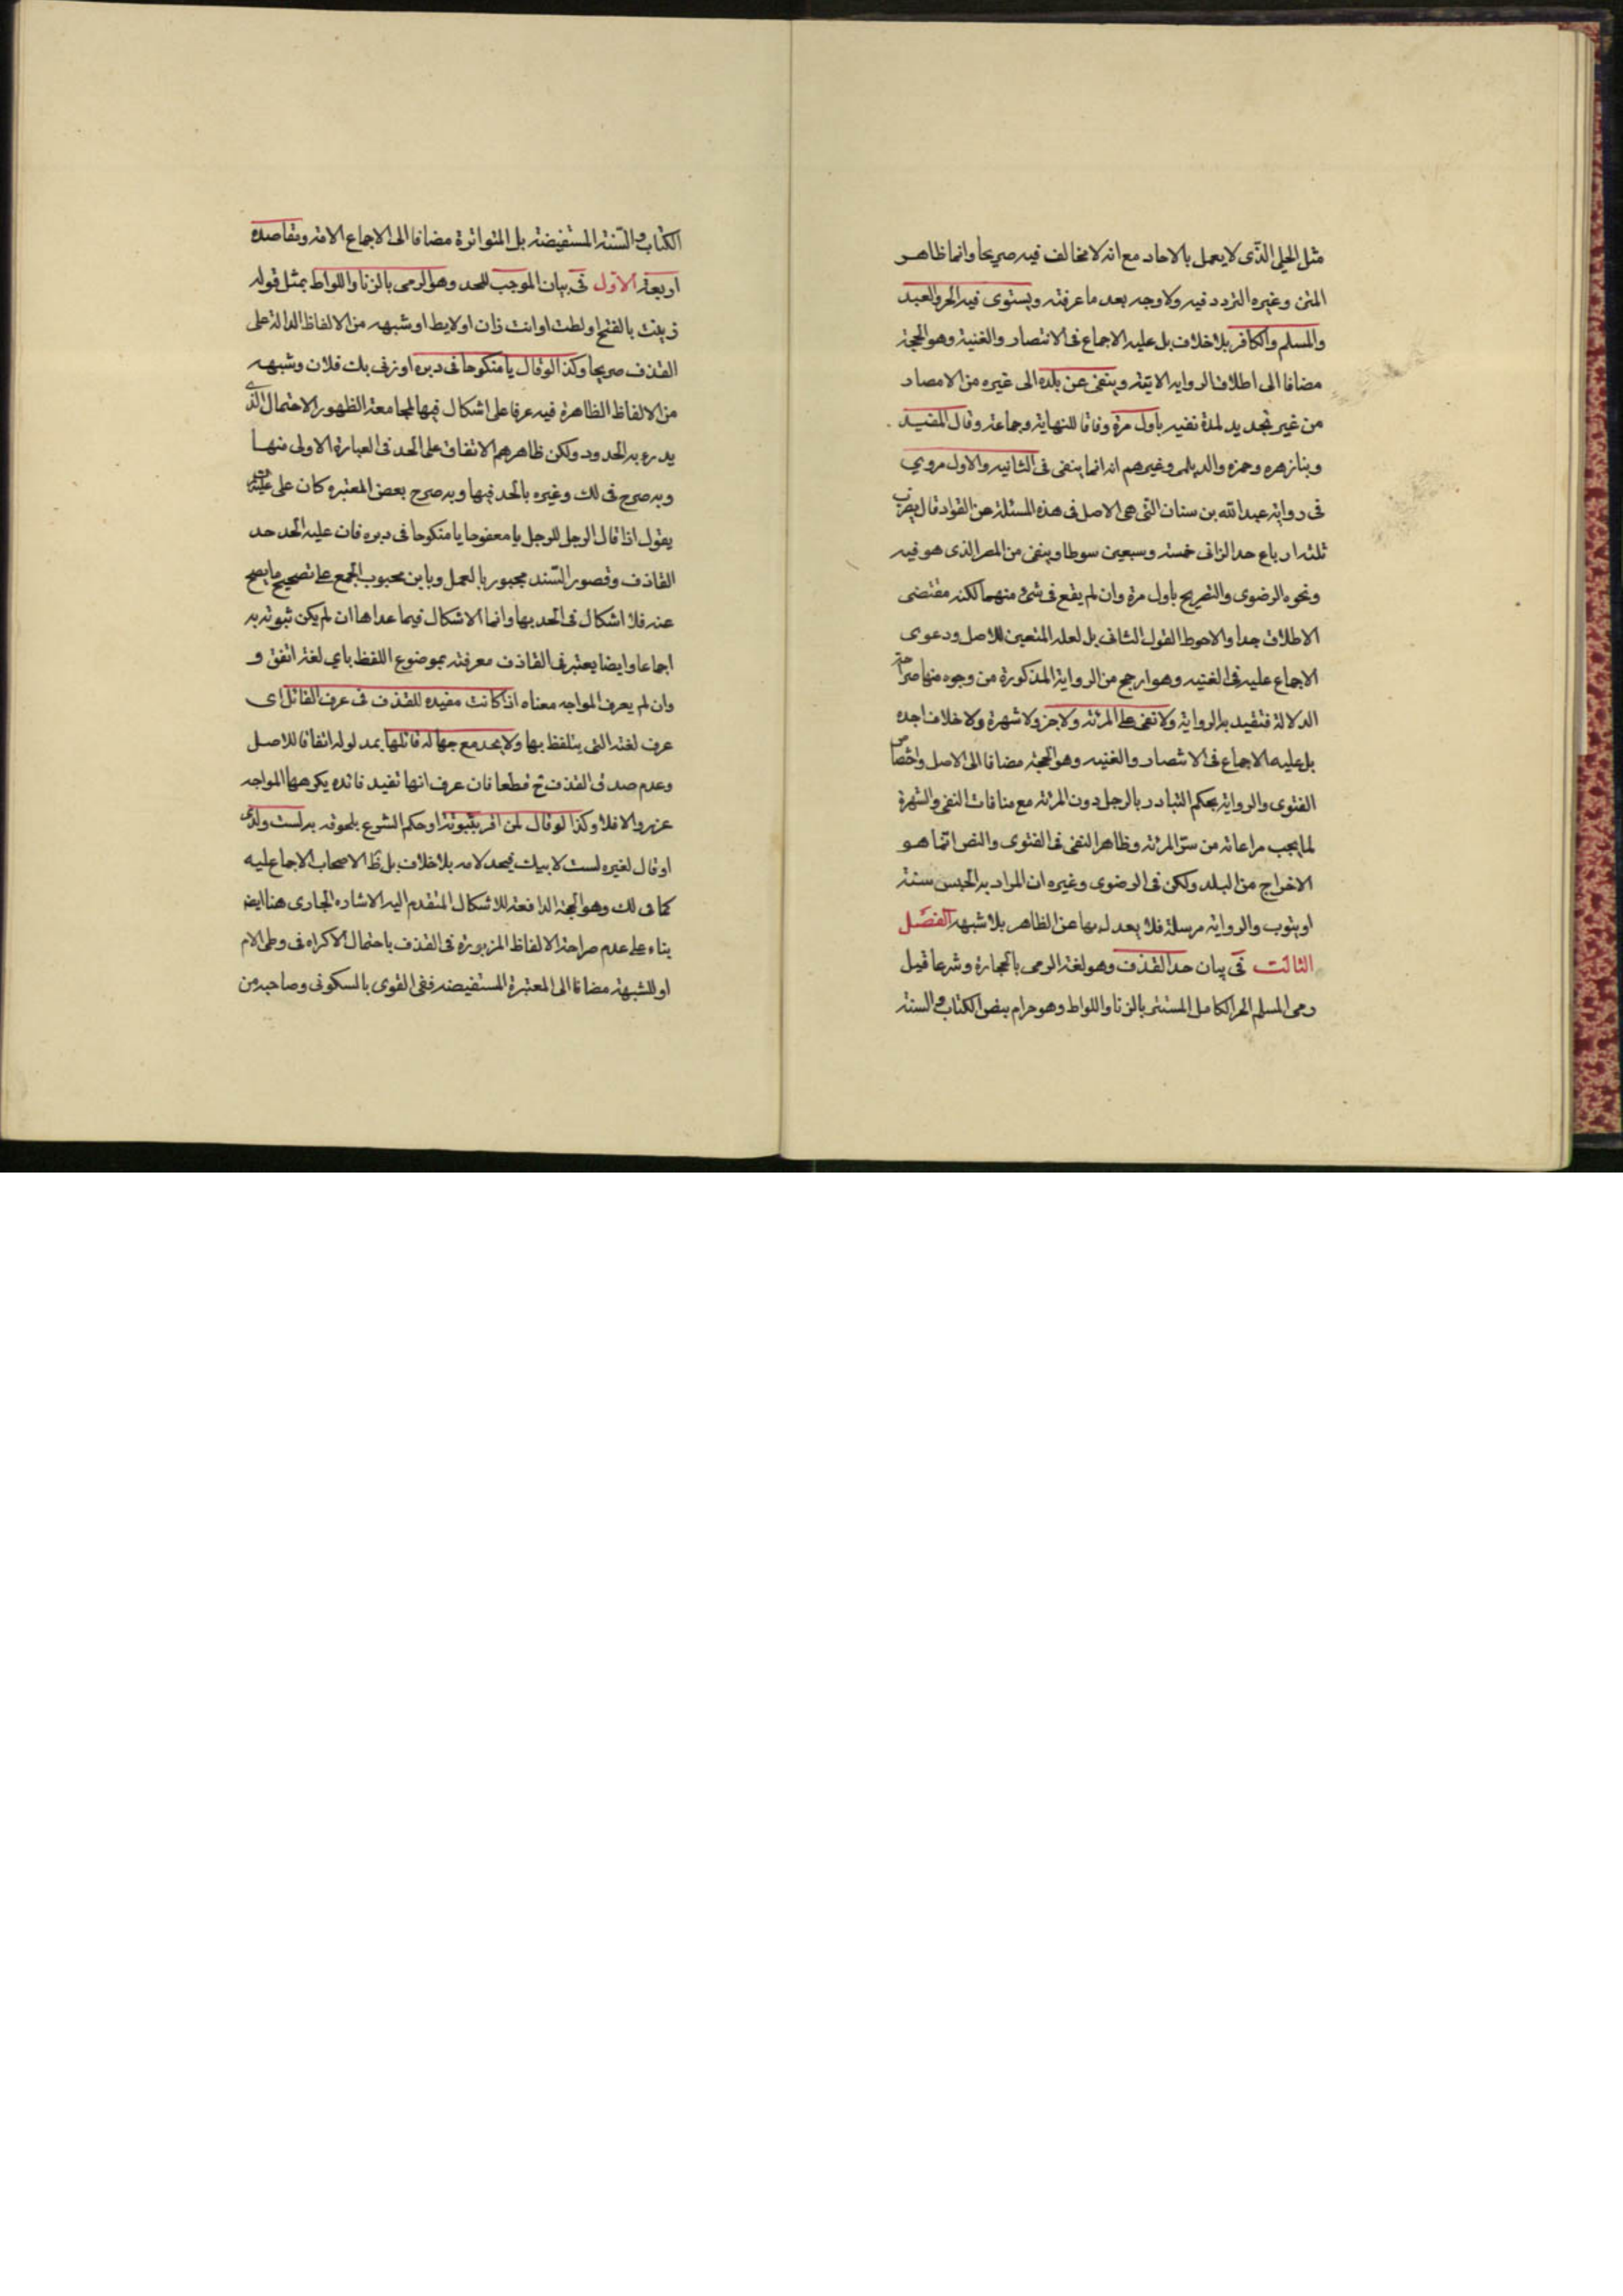 مثل الحلي الذى لا يعمل بالاحاد مع انه لا مخالف فيه صريحا وانما ظاهر
المتن وغيره التردد فيه ولا وجه بعد ما عرفته ويستوى فيه الحر والعبد
والمسلم والكافر بلا خلاف بل عليه الاجماع فى الانتصار والغنية وهو الحجة
مضافا الى اطلاق الروايه الاتية وينفى عن بلده الى غيره من الامصار
من غير تحديد لمدة نفيه باول مرة وفاقا للنهاية وجماعة وقال المفيد
وبنا زهره وحمزه والديلمى وغيرهم انه انما ينفى فى الثانيه والاول مروي
فى رواية عبد الله بن سنان التى هى الاصل فى هذه المسئلة عن القواد قال يضرب
ثلثه ارباع حد الزانى خمسة وسبعين سوطا وينفى من المصر الذى هو فيه
ونحوه الرضوى والتصريح باول مرة وان لم يقع فى شئ منهما لكنه مقتضى
الاطلاق جدا والاحوط القول الثانى بل لعله المتعين للاصل ودعوى
الاجماع عليه فى الغنيه وهو ارجح من الرواية المذكورة من وجوه منها صراحة
الدلالة فتقيد به الرواية ولا نفى على المرئة ولا جز ولا شهرة ولا خلاف اجده
بل عليه الاجماع فى الانتصار والغنيه وهو الحجة مضافا الى الاصل واختصاص
الفتوى والرواية بحكم التبادر بالرجل دون المرئة مع منافات النفى والشهرة
لما يجب مراعاته من ستر المرئة وظاهر النفى فى الفتوى والنص انما هو
الاخراج من البلد ولكن فى الرضوى وغيره ان المراد به الحبس سنة
او يتوب والرواية مرسلة فلا يعدل بها عن الظاهر بلا شبهة الفصل
الثالث فى بيان حد القذف وهو لغة الرمى بالحجارة وشرعا قيل
رمى المسلم الحر الكامل المستتر بالزنا واللواط وهو حرام بنص الكتاب والسنة
الكتاب والسنة المستفيضة بل المتواترة مضافا الى الاجماع الامة ومقاصده
اربعة الاول فى بيان الموجب للحد وهو الرمى بالزنا واللواط بمثل قوله
زنيت بالفتح او لطت او انت زان او لايط او شبهه من الالفاظ الدالة على
القذف صريحا وكذا لو قال يا منكوحا فى دبره او زنى بك فلان وشبهه
من الالفاظ الظاهرة فيه عرفا على اشكال فيها لمجامعة الظهور الاحتمال الذى
يدرء به الحدود ولكن ظاهرهم الاتفاق على الحد فى العبارة الاولى منها
وبه صرح فى لك وغيره بالحد فيها وبه صرح بعض المعتبره كان على
يقول اذا قال الرجل للرجل يا معفوجا يا منكوحا فى دبره فان عليه الحد حد
القاذف وقصور السند مجبور بالعمل وبابن محبوب المجمع على تصحيح ما يصح
عنه فلا اشكال فى الحد بها وانما الاشكال فيما عداها ان لم يكن ثبوته به
اجماعا وايضا يعتبر فى القاذف معرفته بموضوع اللفظ باي لغة اتفق و
وان لم يعرف المواجه معناه اذا كانت مفيده للقذف فى عرف القائل اى
عرف لغته التى يتلفظ بها ولا يحد مع جهالة قائلها بمدلوله اتفاقا للاصل
وعدم صدق القذف ح قطعا فان عرف انها تفيد فائده يكرهها المواجه
عزر والا فلا وكذا لو قال لمن اقر ببنوته او حكم الشرع بلحوقه به لست ولدى
او قال لغيره لست لابيك فيحد لامه بلا خلاف بل ظ الاصحاب الاجماع عليه
كما فى لك وهو الحجة الدافعة للاشكال المتقدم اليه الاشاره الجارى هنا ايض
بناء على عدم صراحة الالفاظ المزبورة فى القذف باحتمال الاكراه فى وطى الام
او للشبهة مضافا الى المعتبرة المستفيضه ففى القوى بالسكونى وصاحبه من